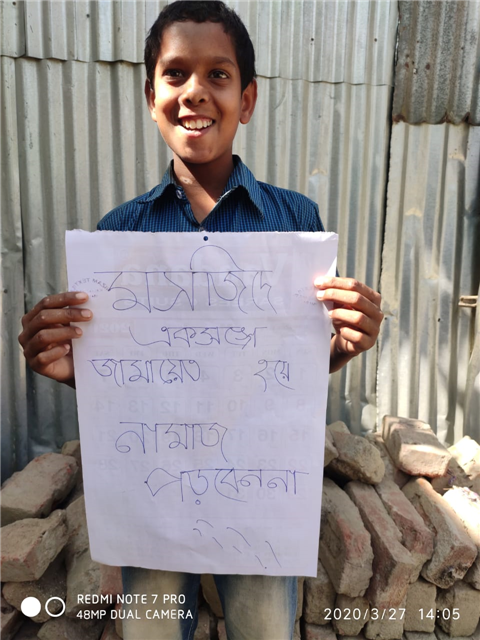 মসজিদে
একসঙ্গে
জামায়েত হয়ে
নামাজ
পড়বেননা
REDMI NOTE 7 PRO
48MP DUAL CAMERA
2020/3/27 14:05